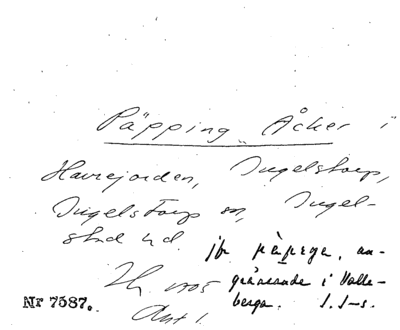 Päpping Åcker i
Havrejorden, Ingelstorp,
Ingelstorps sn, Ingel-
stad hd. jfr an-
gränsande i Valle-
berga.
Nr 7587.